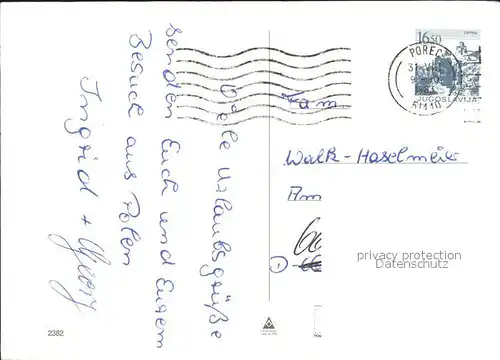 Viele Urlaubsgrüße
senden Euch und Eurem
Besuch aus Polen
Ingrid + Georg
2382
16.50
POREČ
51440
JUGOSLAVIJA
Fam
Walk-Haselmeier
Am
privacy protection
Datenschutz